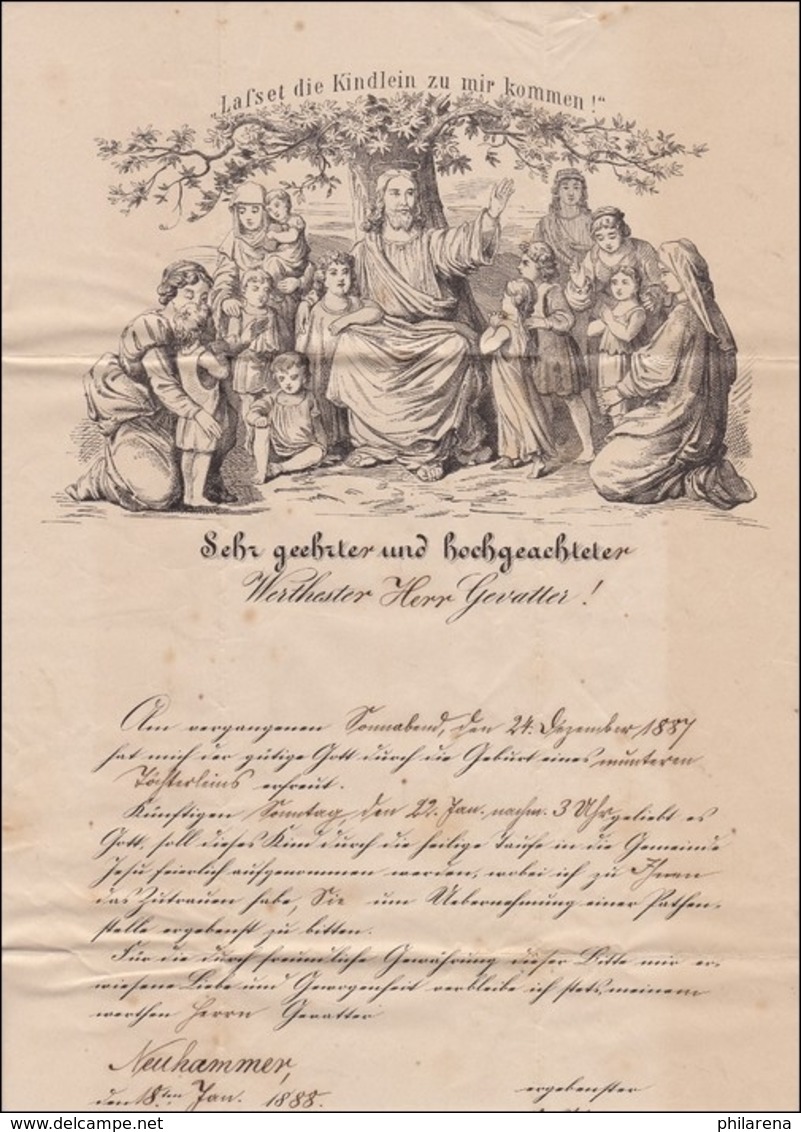 „Lafset die Kindlein zu mir kommen!“
Sehr geehrter und hochgeachteter
Werthester Herr Gevatter!
Am vergangenen Sonnabend, den 24. Dezember 1887
hat mich der gütige Gott durch die Geburt eines munteren
Töchterleins erfreut.
Künftigen Sonntag, den 22. Jan. nachm. 3 Uhr, geliebt es
Gott, soll dieses Kind durch die heilige Taufe in die Gemeinde
Jesu feierlich aufgenommen werden, wobei ich zu Ihnen
das Zutrauen habe, Sie um Uebernehmung einer Pathen-
stelle ergebenst zu bitten.
Für die durch freundliche Gewährung dieser Bitte mir er-
wiesene Liebe und Gewogenheit verbleibe ich stets meinem
werthen Herrn Gevatter
Neuhammer,
den 18ten Jan. 1888.
ergebenster
delcampe.net
philarena